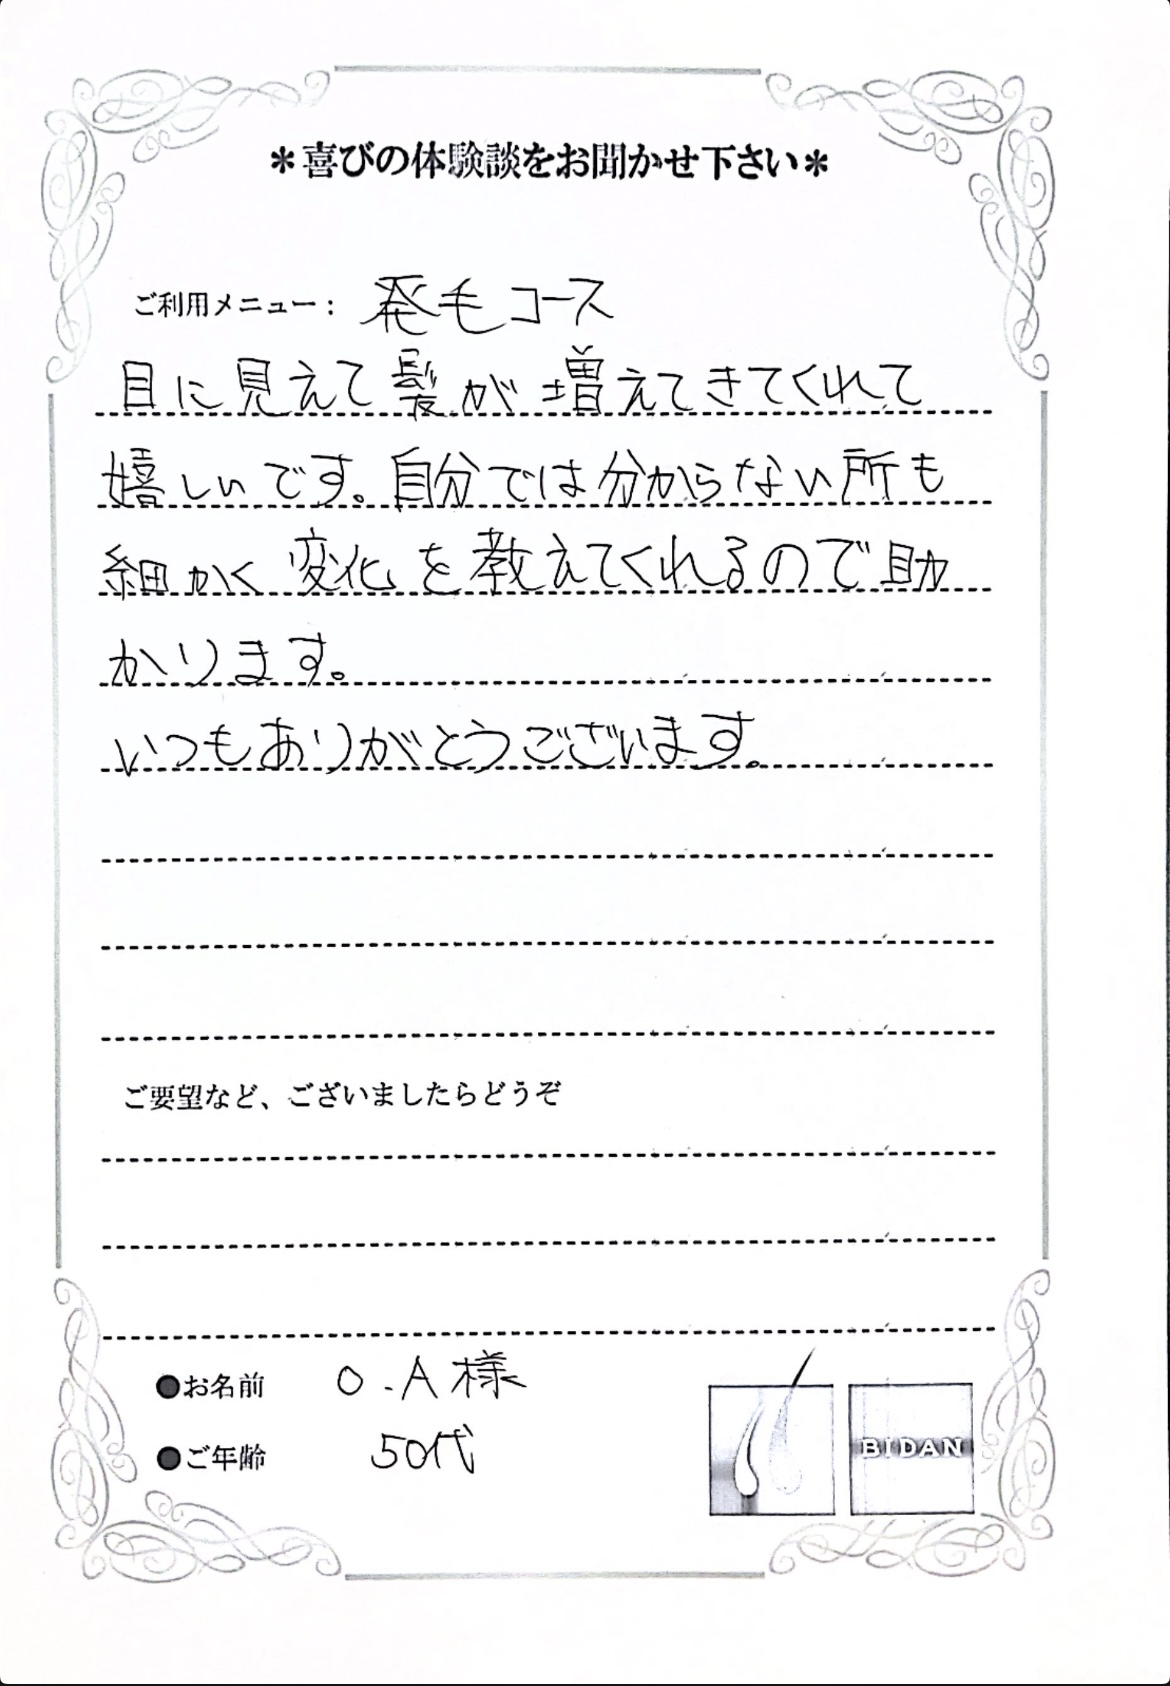 ＊喜びの体験談をお聞かせ下さい＊
ご利用メニュー： 発毛コース
目に見えて髪が増えてきてくれて
嬉しいです。自分では分からない所も
細かく変化を教えてくれるので助
かります。
いつもありがとうございます。
ご要望など、ございましたらどうぞ
●お名前 O.A様
●ご年齢 50代
BIDAN